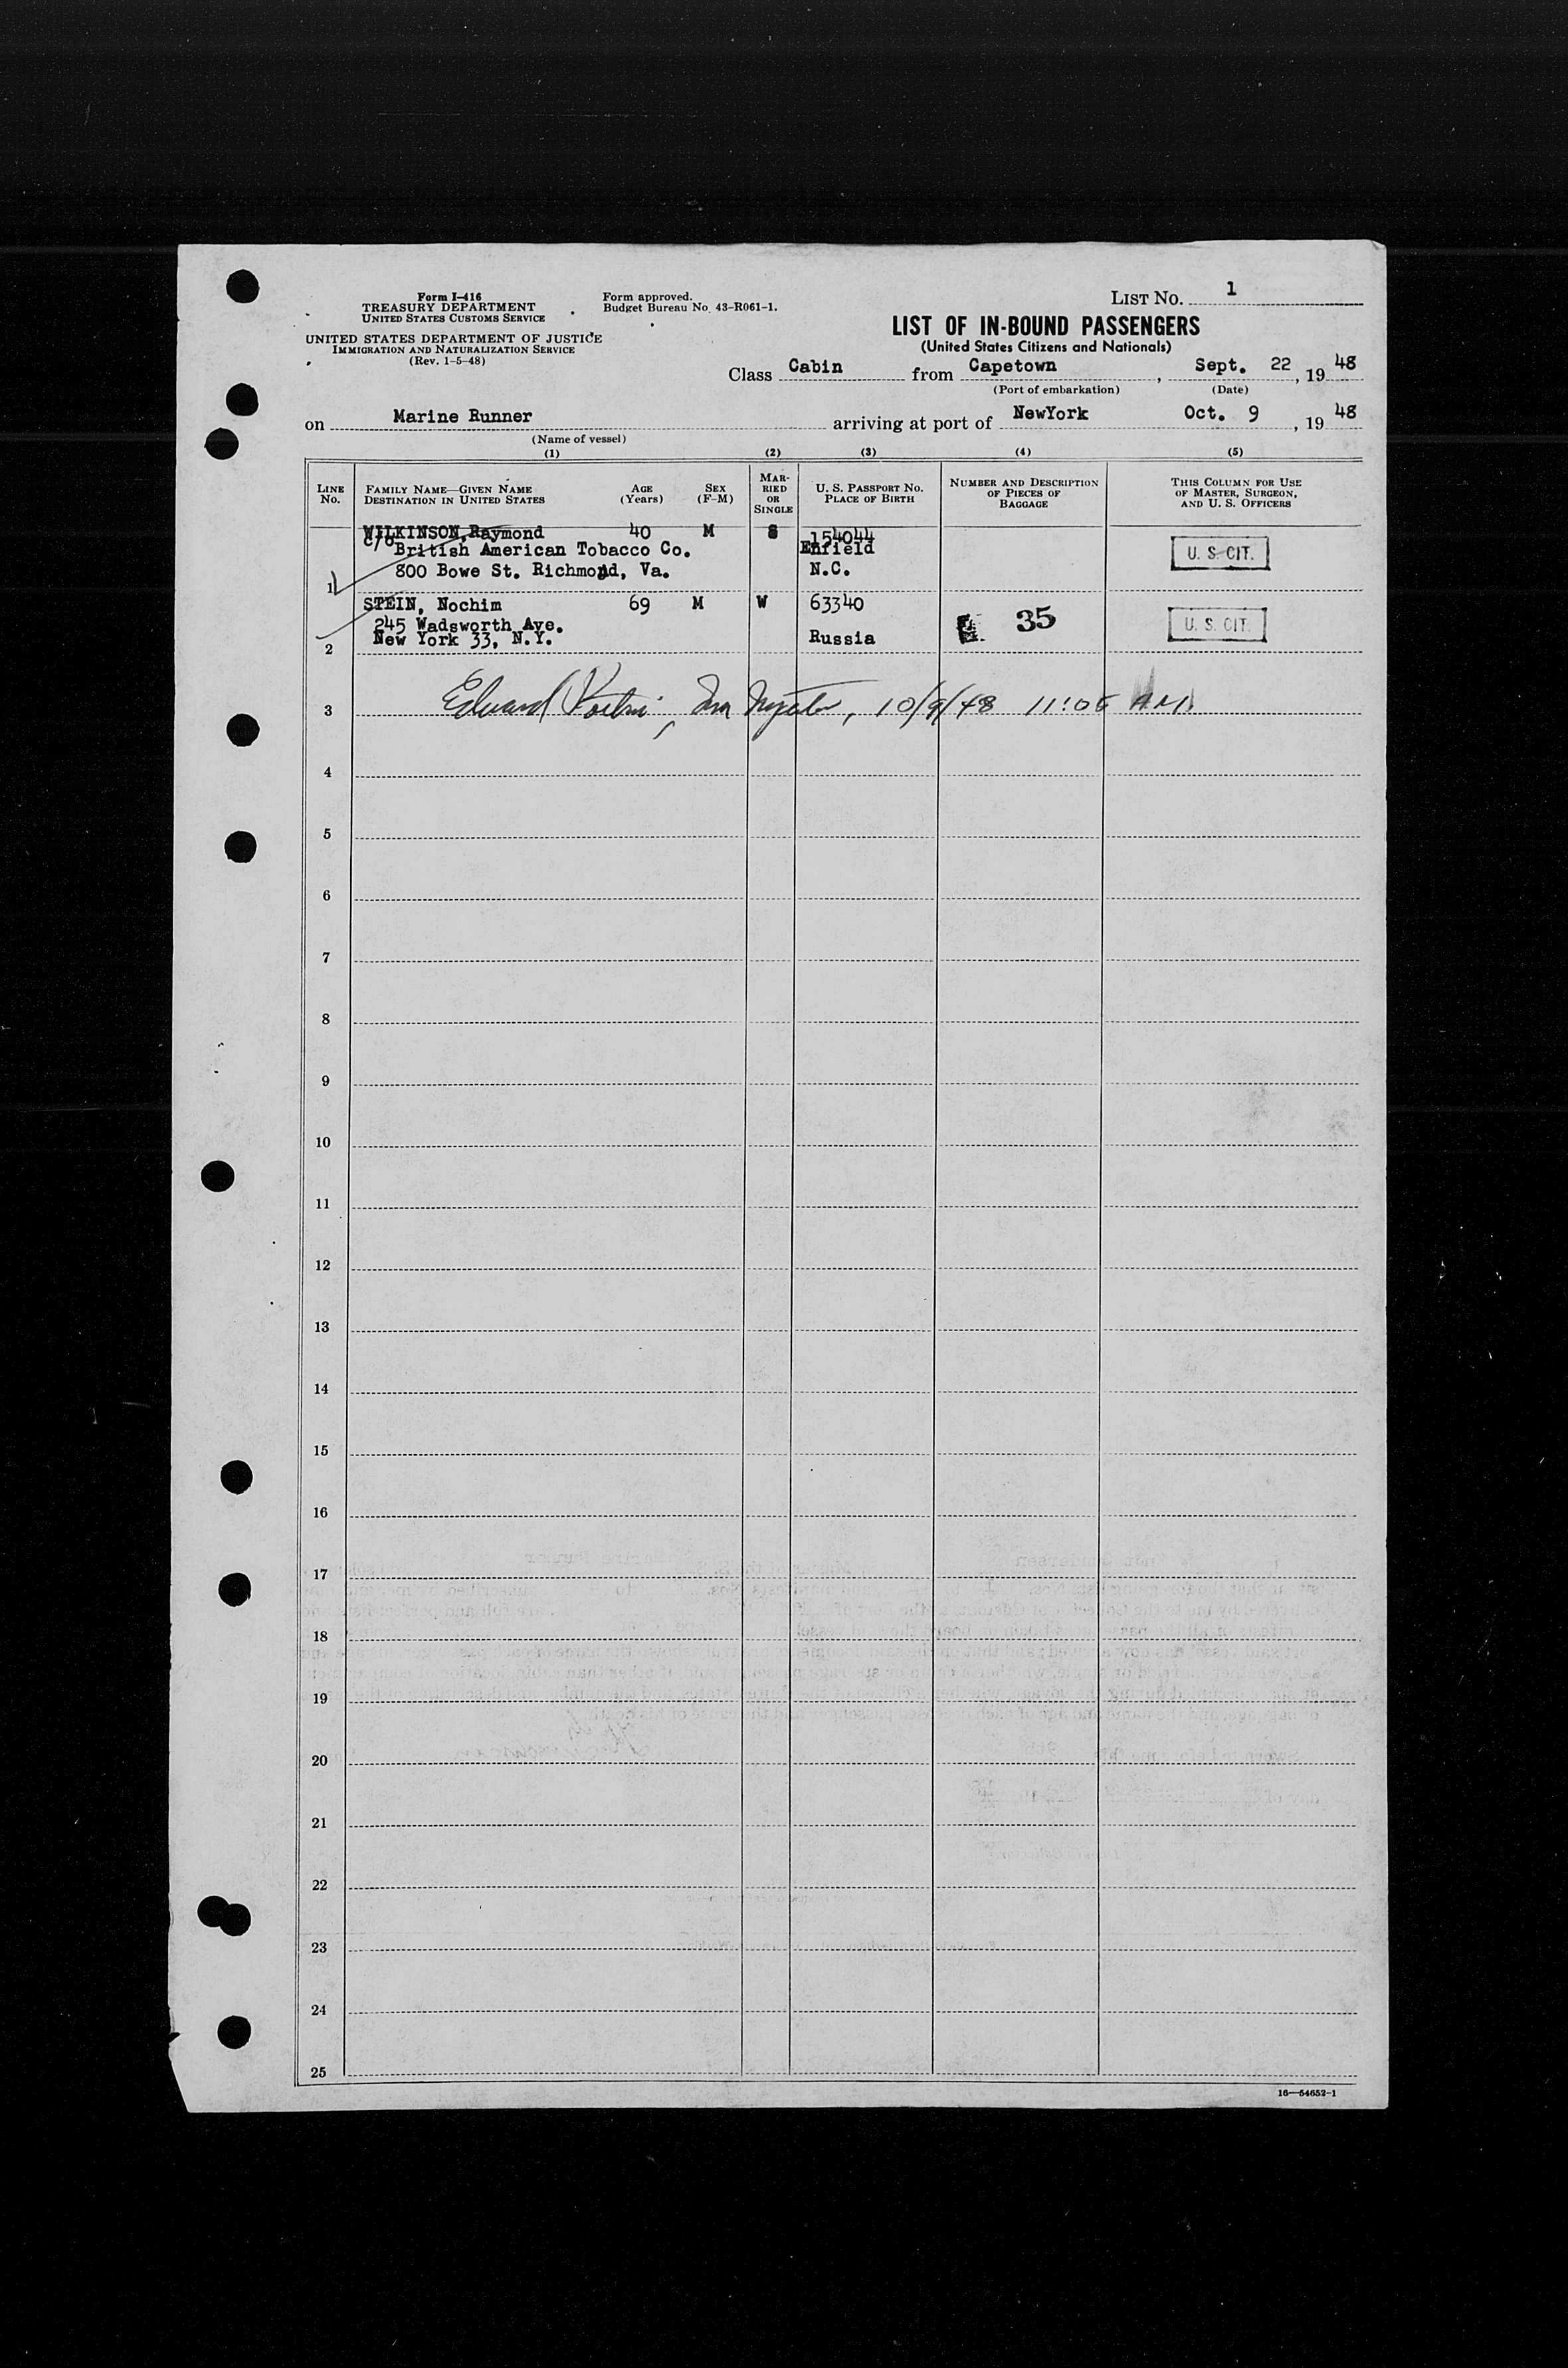 Form I-416
TREASURY DEPARTMENT
UNITED STATES CUSTOMS SERVICE
UNITED STATES DEPARTMENT OF JUSTICE
IMMIGRATION AND NATURALIZATION SERVICE
(Rev. 1-5-48)
Form approved.
Budget Bureau No. 43-R061-1.
LIST No. 1
LIST OF IN-BOUND PASSENGERS
(United States Citizens and Nationals)
Class Cabin from Capetown, Sept. 22, 19 48
(Port of embarkation) (Date)
on Marine Runner arriving at port of NewYork Oct. 9, 19 48
(Name of vessel)
(1) (2) (3) (4) (5)
LINE No.
FAMILY NAME—GIVEN NAME
DESTINATION IN UNITED STATES
AGE (Years)
SEX (F-M)
MARRIED OR SINGLE
U. S. PASSPORT NO.
PLACE OF BIRTH
NUMBER AND DESCRIPTION
OF PIECES OF
BAGGAGE
THIS COLUMN FOR USE
OF MASTER, SURGEON,
AND U. S. OFFICERS
WILKINSON, Raymond 40 M S 154044
c/o British American Tobacco Co. Enfield U. S. CIT.
1 800 Bowe St. Richmond, Va. N.C.
STEIN, Nochim 69 M W 63340
245 Wadsworth Ave. 35 U. S. CIT.
2 New York 33, N.Y. Russia
3 Edward 10/9/48 11:05 AM
4
5
6
7
8
9
10
11
12
13
14
15
16
17
18
19
20
21
22
23
24
25
16—54652-1